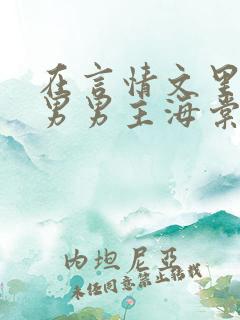 在言情文里
男男主海棠
内坦尼亚
未经同意禁止转载